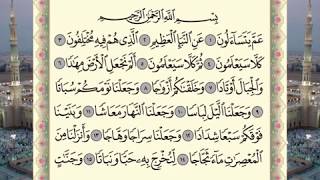 بِسْمِ اللَّهِ الرَّحْمَٰنِ الرَّحِيمِ
عَمَّ يَتَسَاءَلُونَ ١ عَنِ النَّبَإِ الْعَظِيمِ ٢ الَّذِي هُمْ فِيهِ مُخْتَلِفُونَ ٣
كَلَّا سَيَعْلَمُونَ ٤ ثُمَّ كَلَّا سَيَعْلَمُونَ ٥ أَلَمْ نَجْعَلِ الْأَرْضَ مِهَادًا ٦
وَالْجِبَالَ أَوْتَادًا ٧ وَخَلَقْنَاكُمْ أَزْوَاجًا ٨ وَجَعَلْنَا نَوْمَكُمْ سُبَاتًا
٩ وَجَعَلْنَا اللَّيْلَ لِبَاسًا ١٠ وَجَعَلْنَا النَّهَارَ مَعَاشًا ١١ وَبَنَيْنَا
فَوْقَكُمْ سَبْعًا شِدَادًا ١٢ وَجَعَلْنَا سِرَاجًا وَهَّاجًا ١٣ وَأَنْزَلْنَا مِنَ
الْمُعْصِرَاتِ مَاءً ثَجَّاجًا ١٤ لِنُخْرِجَ بِهِ حَبًّا وَنَبَاتًا ١٥ وَجَنَّاتٍ